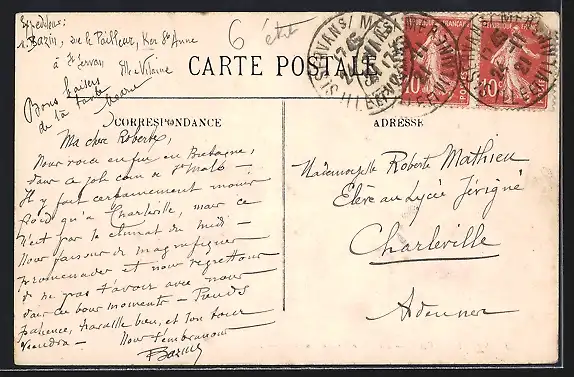 Expéditeur:
Bazin, rue le Pailleur, Ker Ste Anne
à St Servan
Ille et Vilaine
6 été
Bons baisers
de ta tante
CARTE POSTALE
CORRESPONDANCE
ADRESSE
Ma chère Roberte,
Nous voici enfin en Bretagne,
dans ce joli coin de St Malo -
Il y fait certainement moins
froid qu'à Charleville, mais ce
n'est pas le climat du midi -
Nous faisons de magnifiques
promenades et nous regrettons
de ne pas t'avoir avec nous
dans ces bons moments - Prends
patience, travaille bien, et ton tour
viendra - Nous t'embrassons
Bazin
Mademoiselle Roberte Mathieu
Elève au Lycée Sévigné
Charleville
Ardennes
REPUBLIQUE FRANÇAISE
10
10